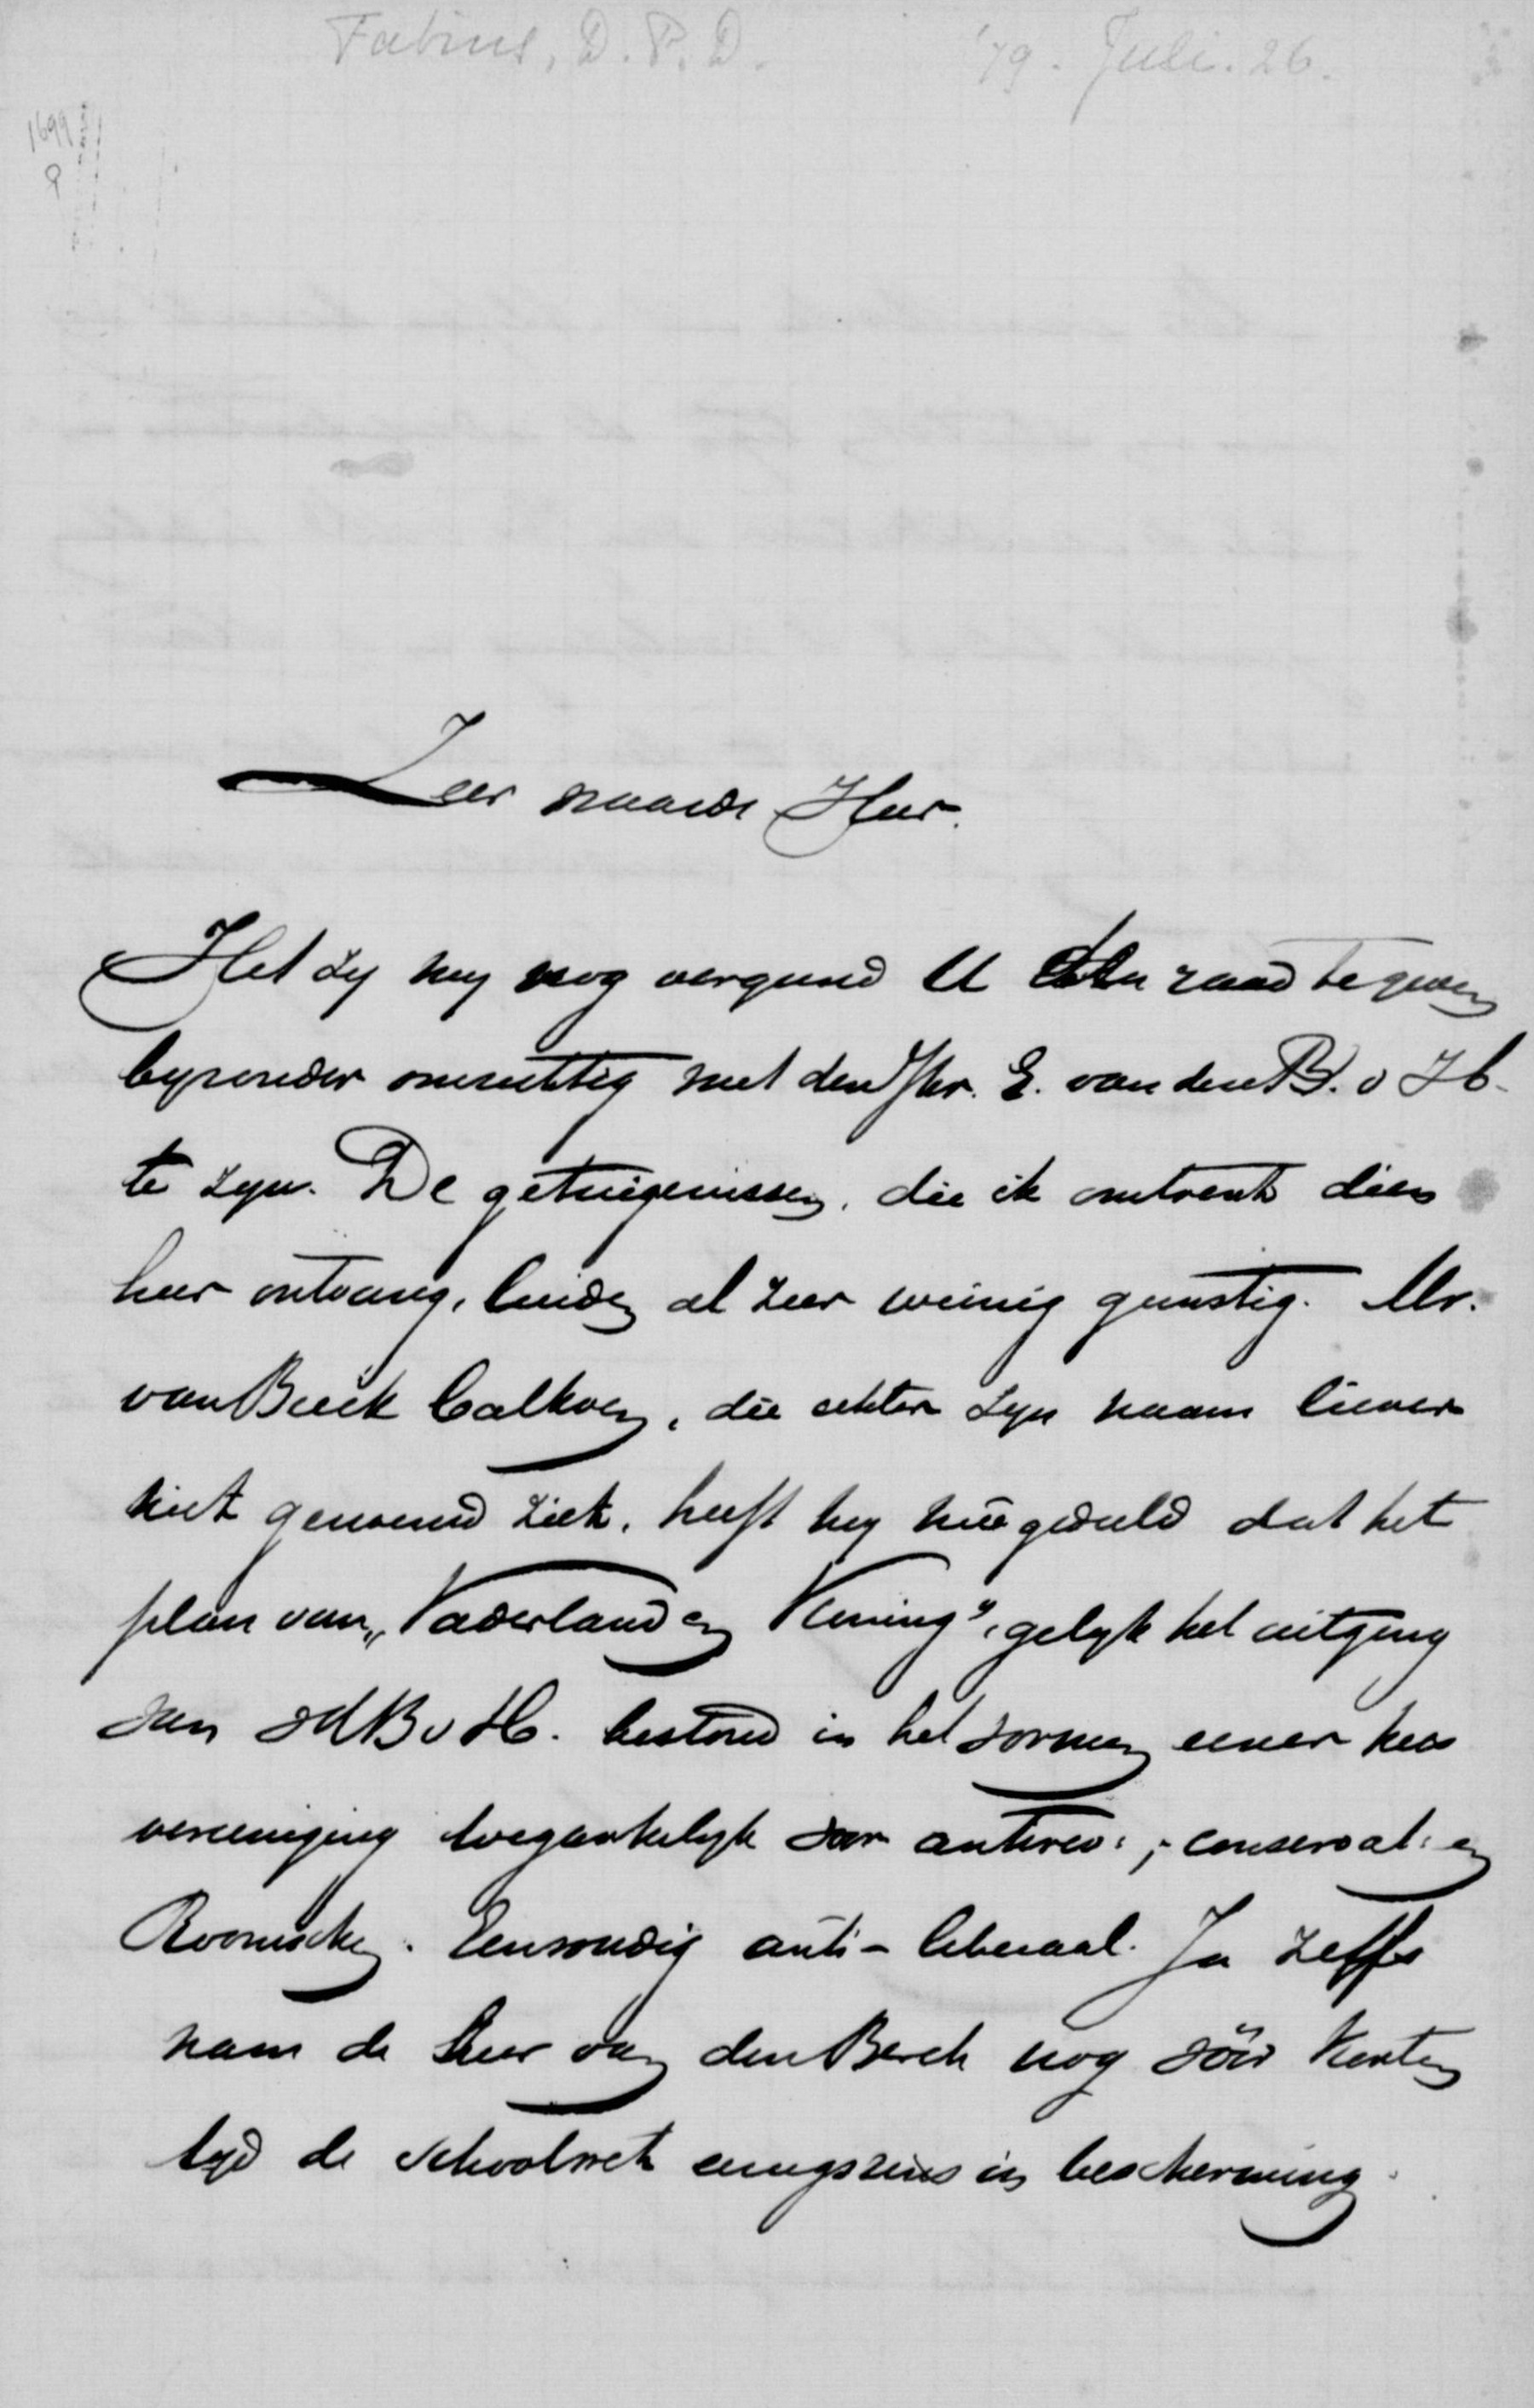 Fabius, D.P.D. '79. Juli. 26.
1699
9
Zeer waarde Heer.
Het zy my nog vergund U den raad te geven
byzonder omzichtig met den Jhr. E. van den B. v H.
te zyn. De getuigenissen, die ik omtrent dien
heer ontvang, luiden al zeer weinig gunstig. Mr.
van Beeck Calkoen, die echter zyn naam liever
niet genoemd ziet, heeft my meegedeeld dat het
plan van „Vaderland en Koning", gelyk het uitging
van vd B v H. bestond in het vormen eener kies
vereeniging toegankelyk voor antirev:, conservat: en
Roomschen. Eenvoudig anti-liberaal. Ja zelfs
nam de heer van den Berch nog vóór korten
tyd de schoolwet eenigszins in bescherming.